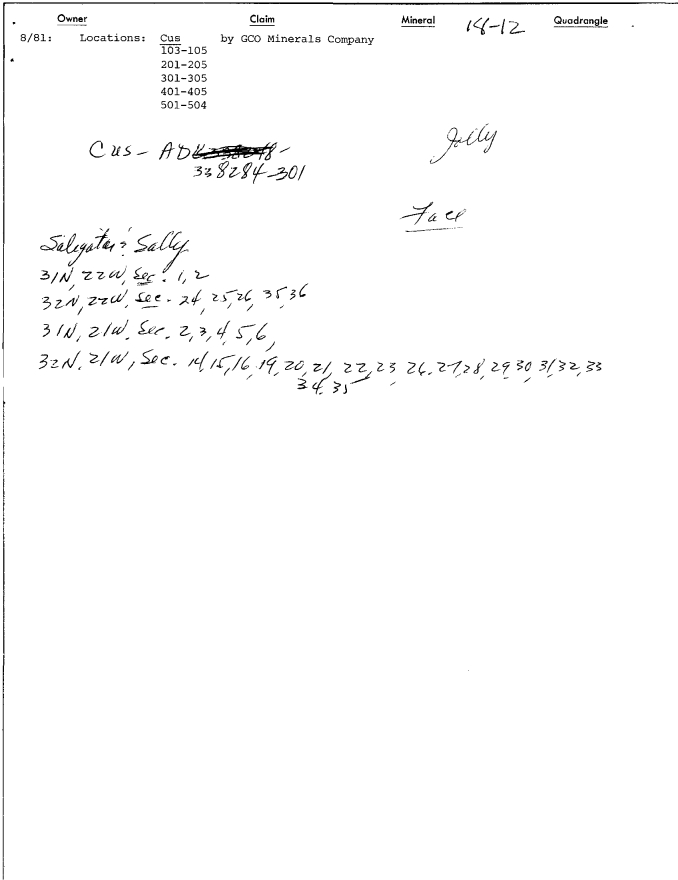 Owner Claim Mineral 18-12 Quadrangle
8/81: Locations: Cus by GCO Minerals Company
103-105
201-205
301-305
401-405
501-504
Cus - AD
338284-301
Face
Sally
31N, 22W, Sec. 1, 2
32N, 22W, Sec. 24, 25, 26, 35, 36
31N, 21W, Sec. 2, 3, 4, 5, 6,
32N, 21W, Sec. 14, 15, 16, 19, 20, 21, 22, 23 26, 27, 28, 29, 30 31, 32, 33
34, 35